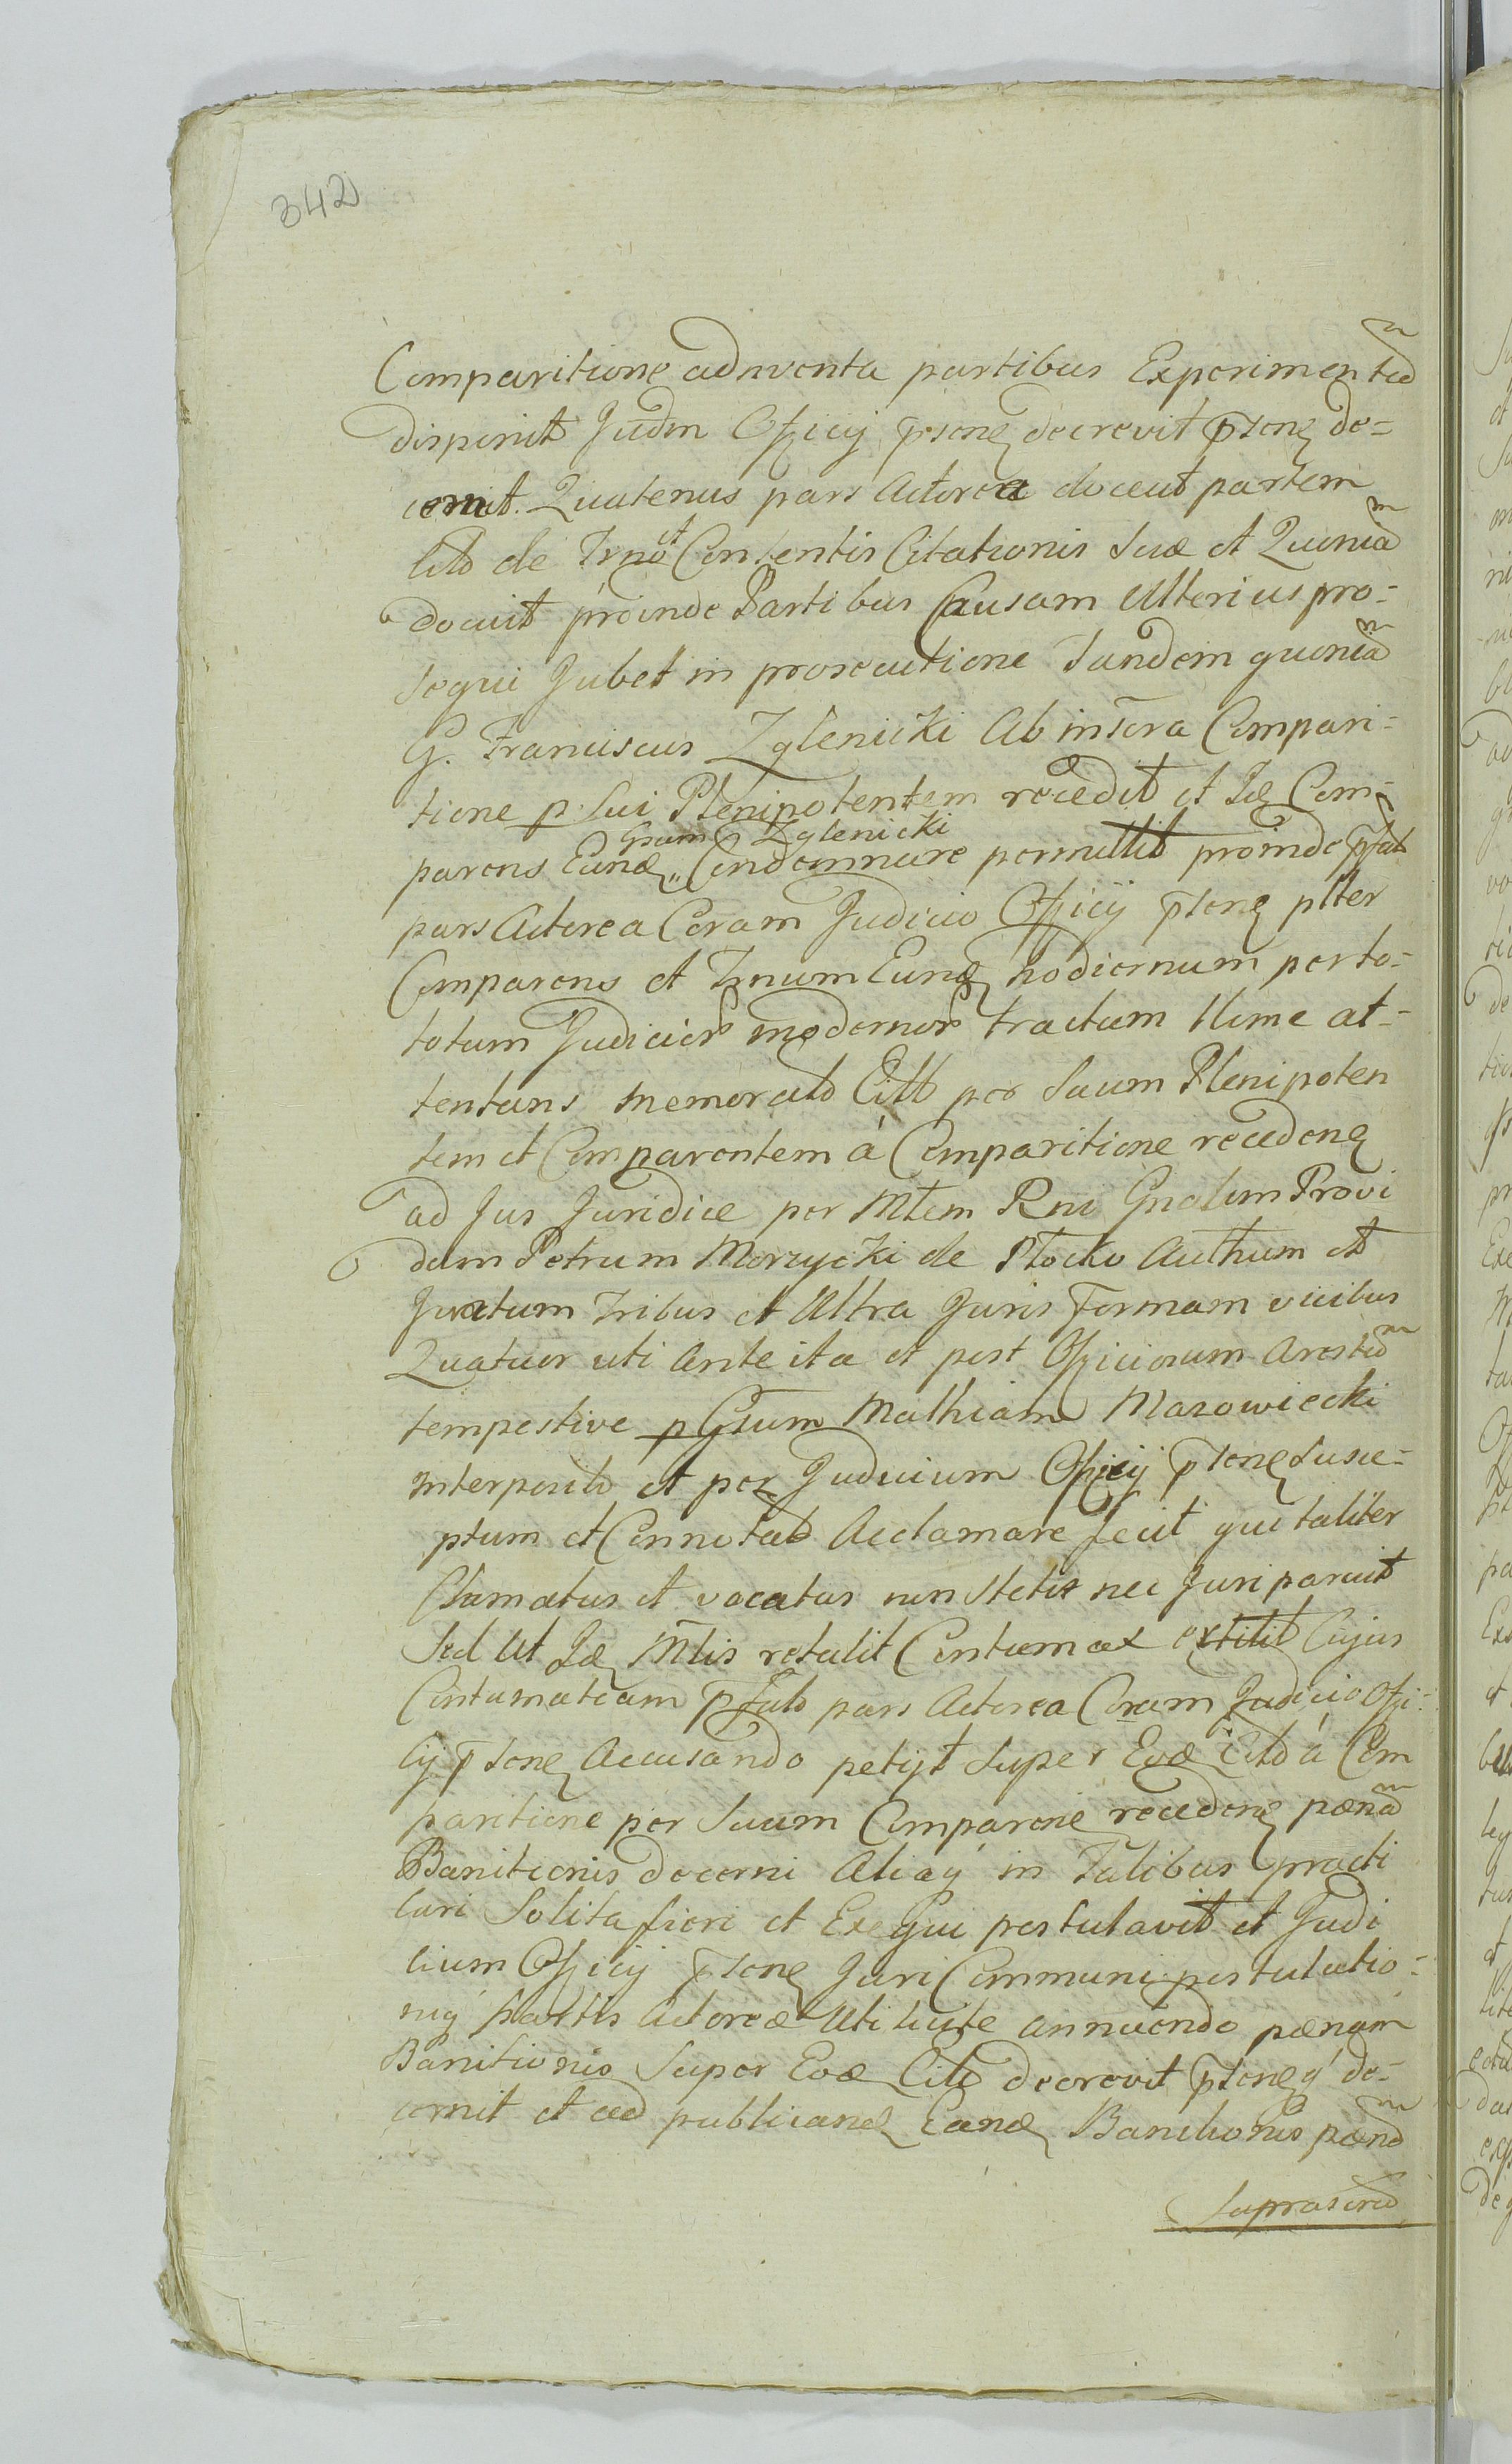 342
Comparitione adinventa partibus Experimentũ
disponit Judm Officij pñsenʒ decrevit pñtenʒ de=
cernit. Quatenus pars Actorea doceat partem
Citõ de Trnõ et Contentis Citationis Suæ et Quoniã
docuit proinde Partibus Causam Ulterius pro=
sequi Jubet in prosecutione Tandem quoniã
G. Franciscus Zglenicki Ab insẽra Compari=
tione p Sui Plenipotentem recedit et Idẽ Com=
parens Eundẽ Gsum Zglenicki Condemnare permittit proinde pfat
pars Actorea Coram Judicio Officij pñtenʒ plter
Comparens et Trnum Eunđ hodiernum per to=
totum Judicior modernor tractum Ilime at=
tentans memoratõ Cittõ per Suum Plenipoten
tem et Comparentem á Comparitione recedenʒ
ad Jus Juridice per Mtem Rni Gnalem Provi
dum Petrum Morzycki de Płocko Authum et
Juratum Tribus et Ultra Juris Formam vicibus
Quatuor uti Ante ita et post Officiosum Arestũ
tempestive p Gsum Mathiam Mazowiecki
interpositõ et per Judicium Officij pñtenʒ Susce=
ptum et Connotatõ Acclamare fecit qui taliter
Clamatus et vocatus non Stetit nec Juri paruit
Sed Ut Idẽ Mtlis retulit Contumax extitit Cujus
Contumatiam pfatõ pars Actorea Coram Judicio Offi=
cij pñtenʒ Accusando petijt Super Eođ Citõ á Com
paritione per Suum Comparenẽ recedenʒ pænã
Banitionis decerni Aliaq́ in Talibus practi
cari Solita fieri et Exequi postulavit et Judi
cium Officij pñtenʒ Juri Communi postulatio=
niq́ Partis Actoreæ Uti Licite annuendo pænam
Banitionis Super Eođ Citõ decrevit pñtenʒq́ de=
cernit et ad publicanđ Eanđ Banitionis pænã
Suprascrã